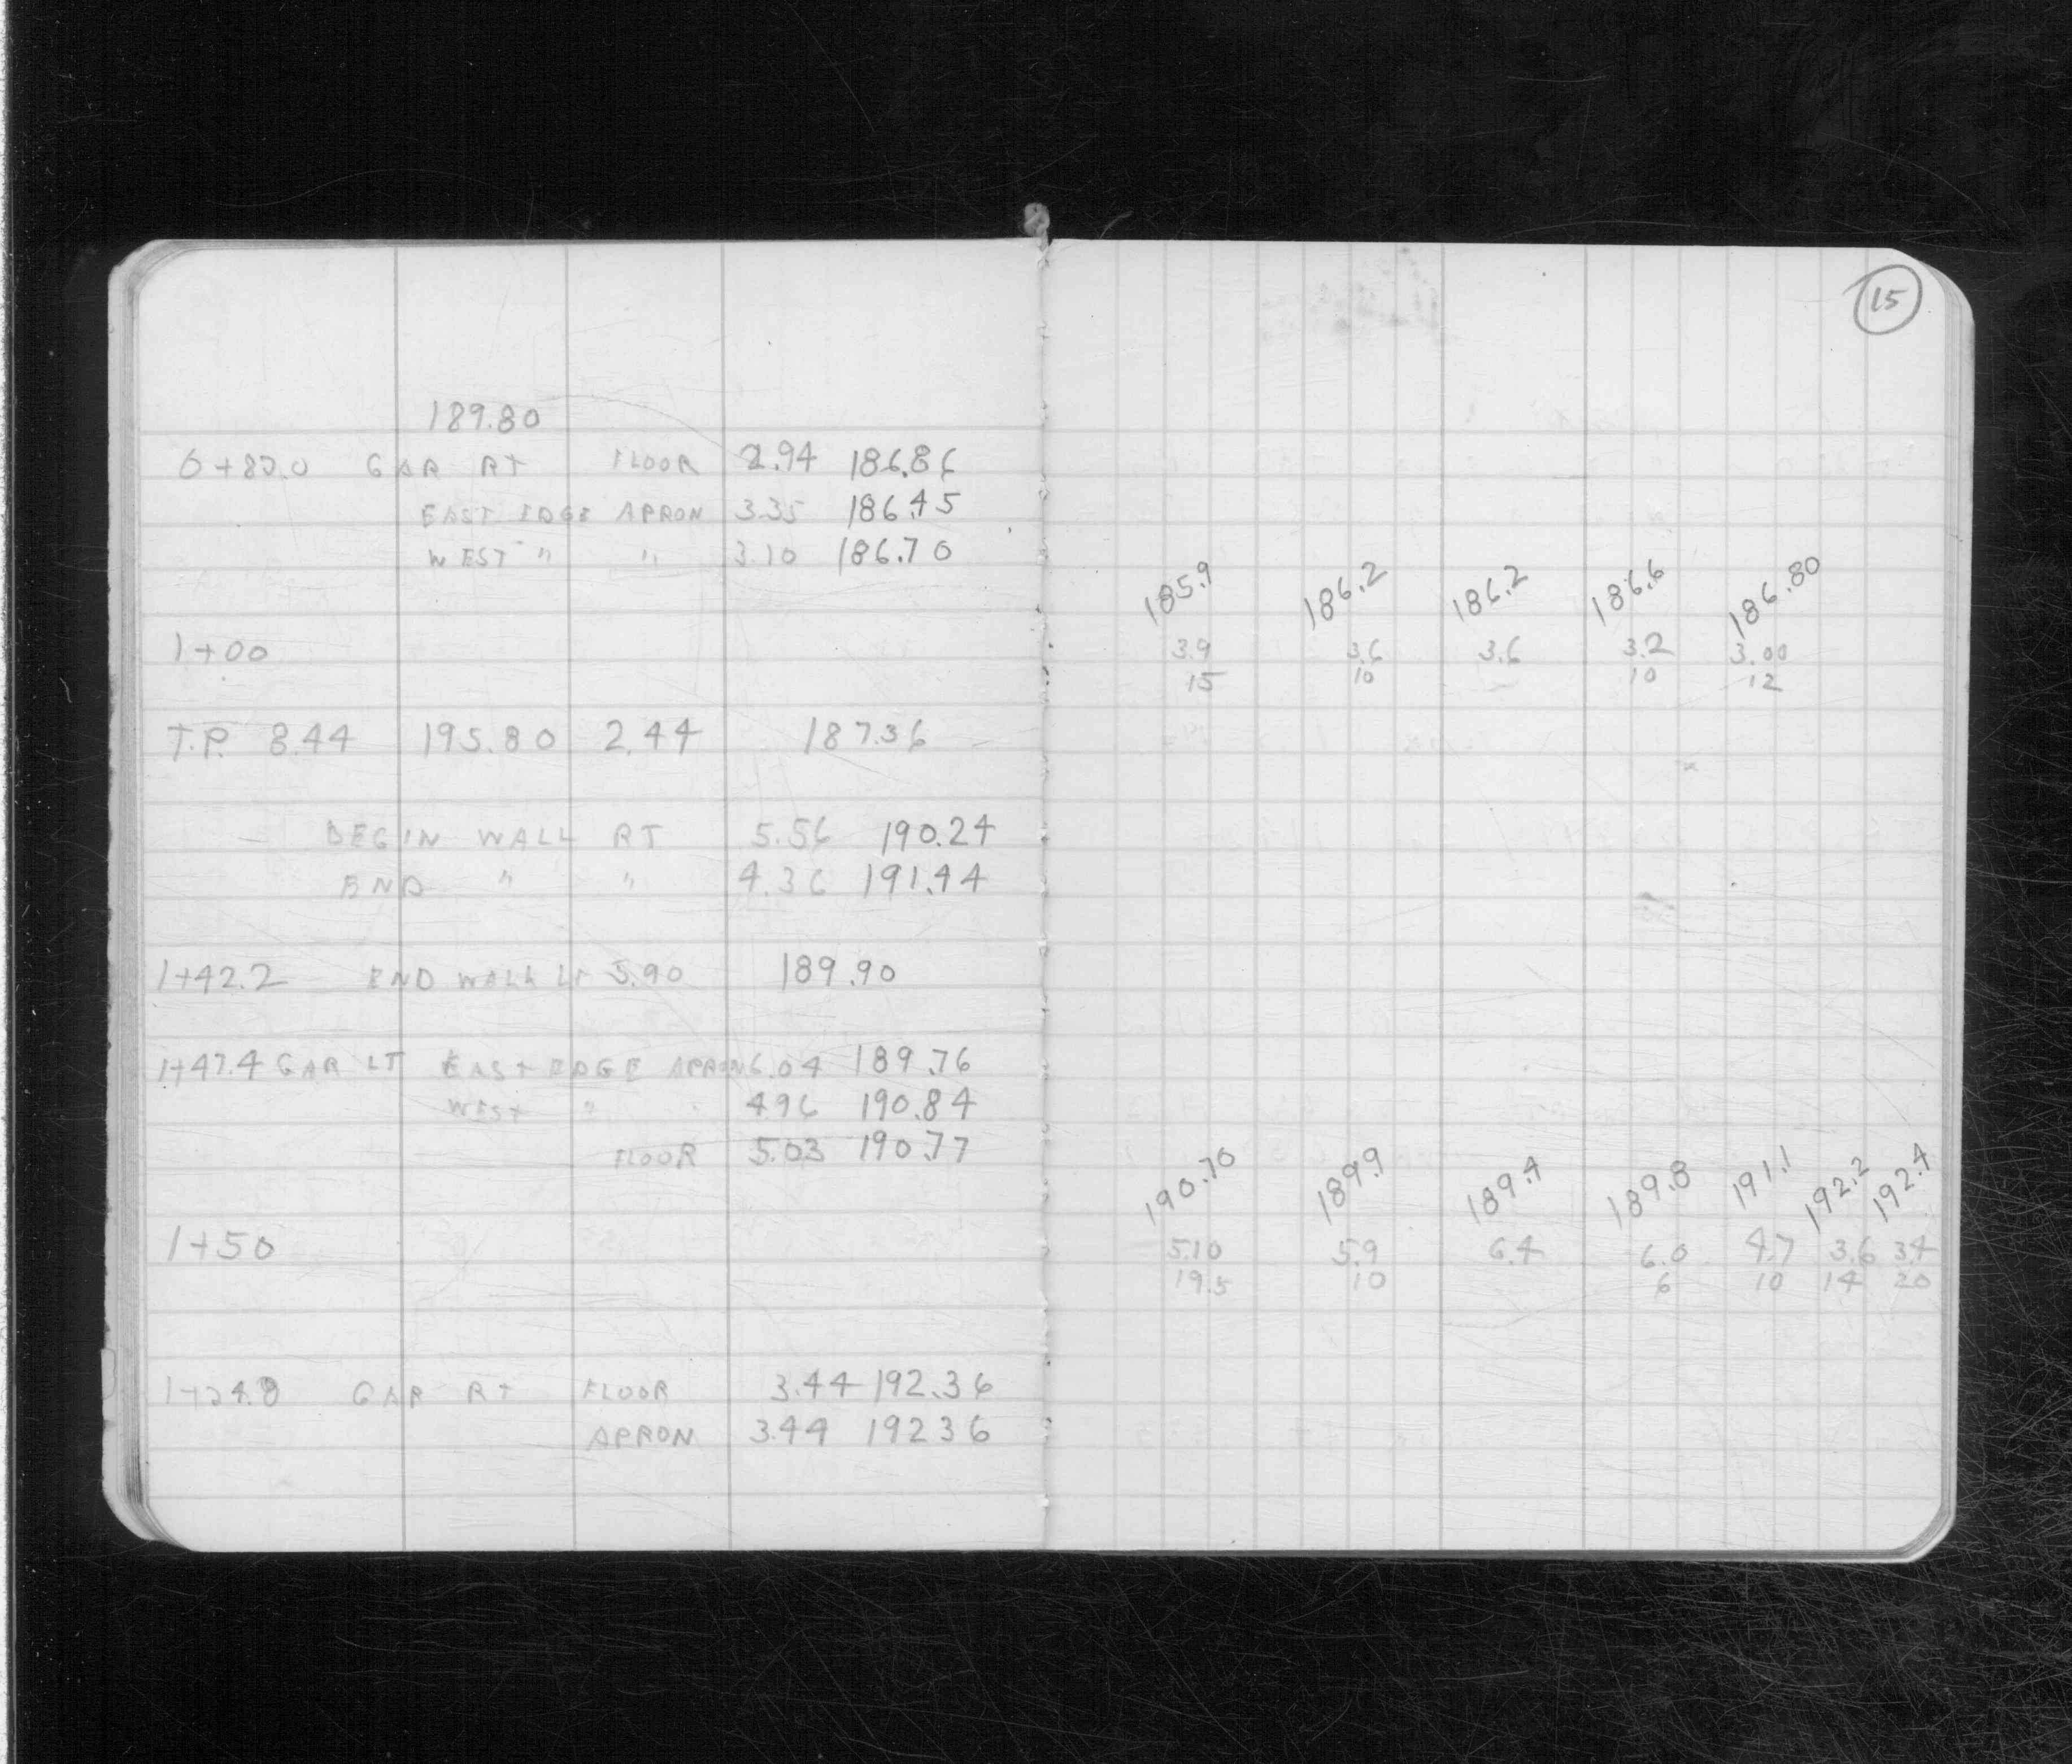 15
189.80
GAR RT FLOOR 2.94 186.86
EAST EDGE APRON 3.35 186.45
WEST " " 3.10 186.70
185.9 186.2 186.2 186.6 186.80
1+00 3.9 3.6 3.6 3.2 3.00
15 10 10 12
T.P. 8.44 195.80 2.44 187.36
BEGIN WALL RT 5.56 190.24
END " " 4.36 191.44
1+42.2 END WALL LT 5.90 189.90
1+47.4 GAR LT EAST EDGE APRON 6.04 189.76
WEST " 4.96 190.84
FLOOR 5.03 190.77
190.70 189.9 189.4 189.8 191.1 192.2 192.4
1+50 5.10 5.9 6.4 6.0 4.7 3.6 3.4
19.5 10 6 10 14 20
GAR RT FLOOR 3.44 192.36
APRON 3.44 192 36